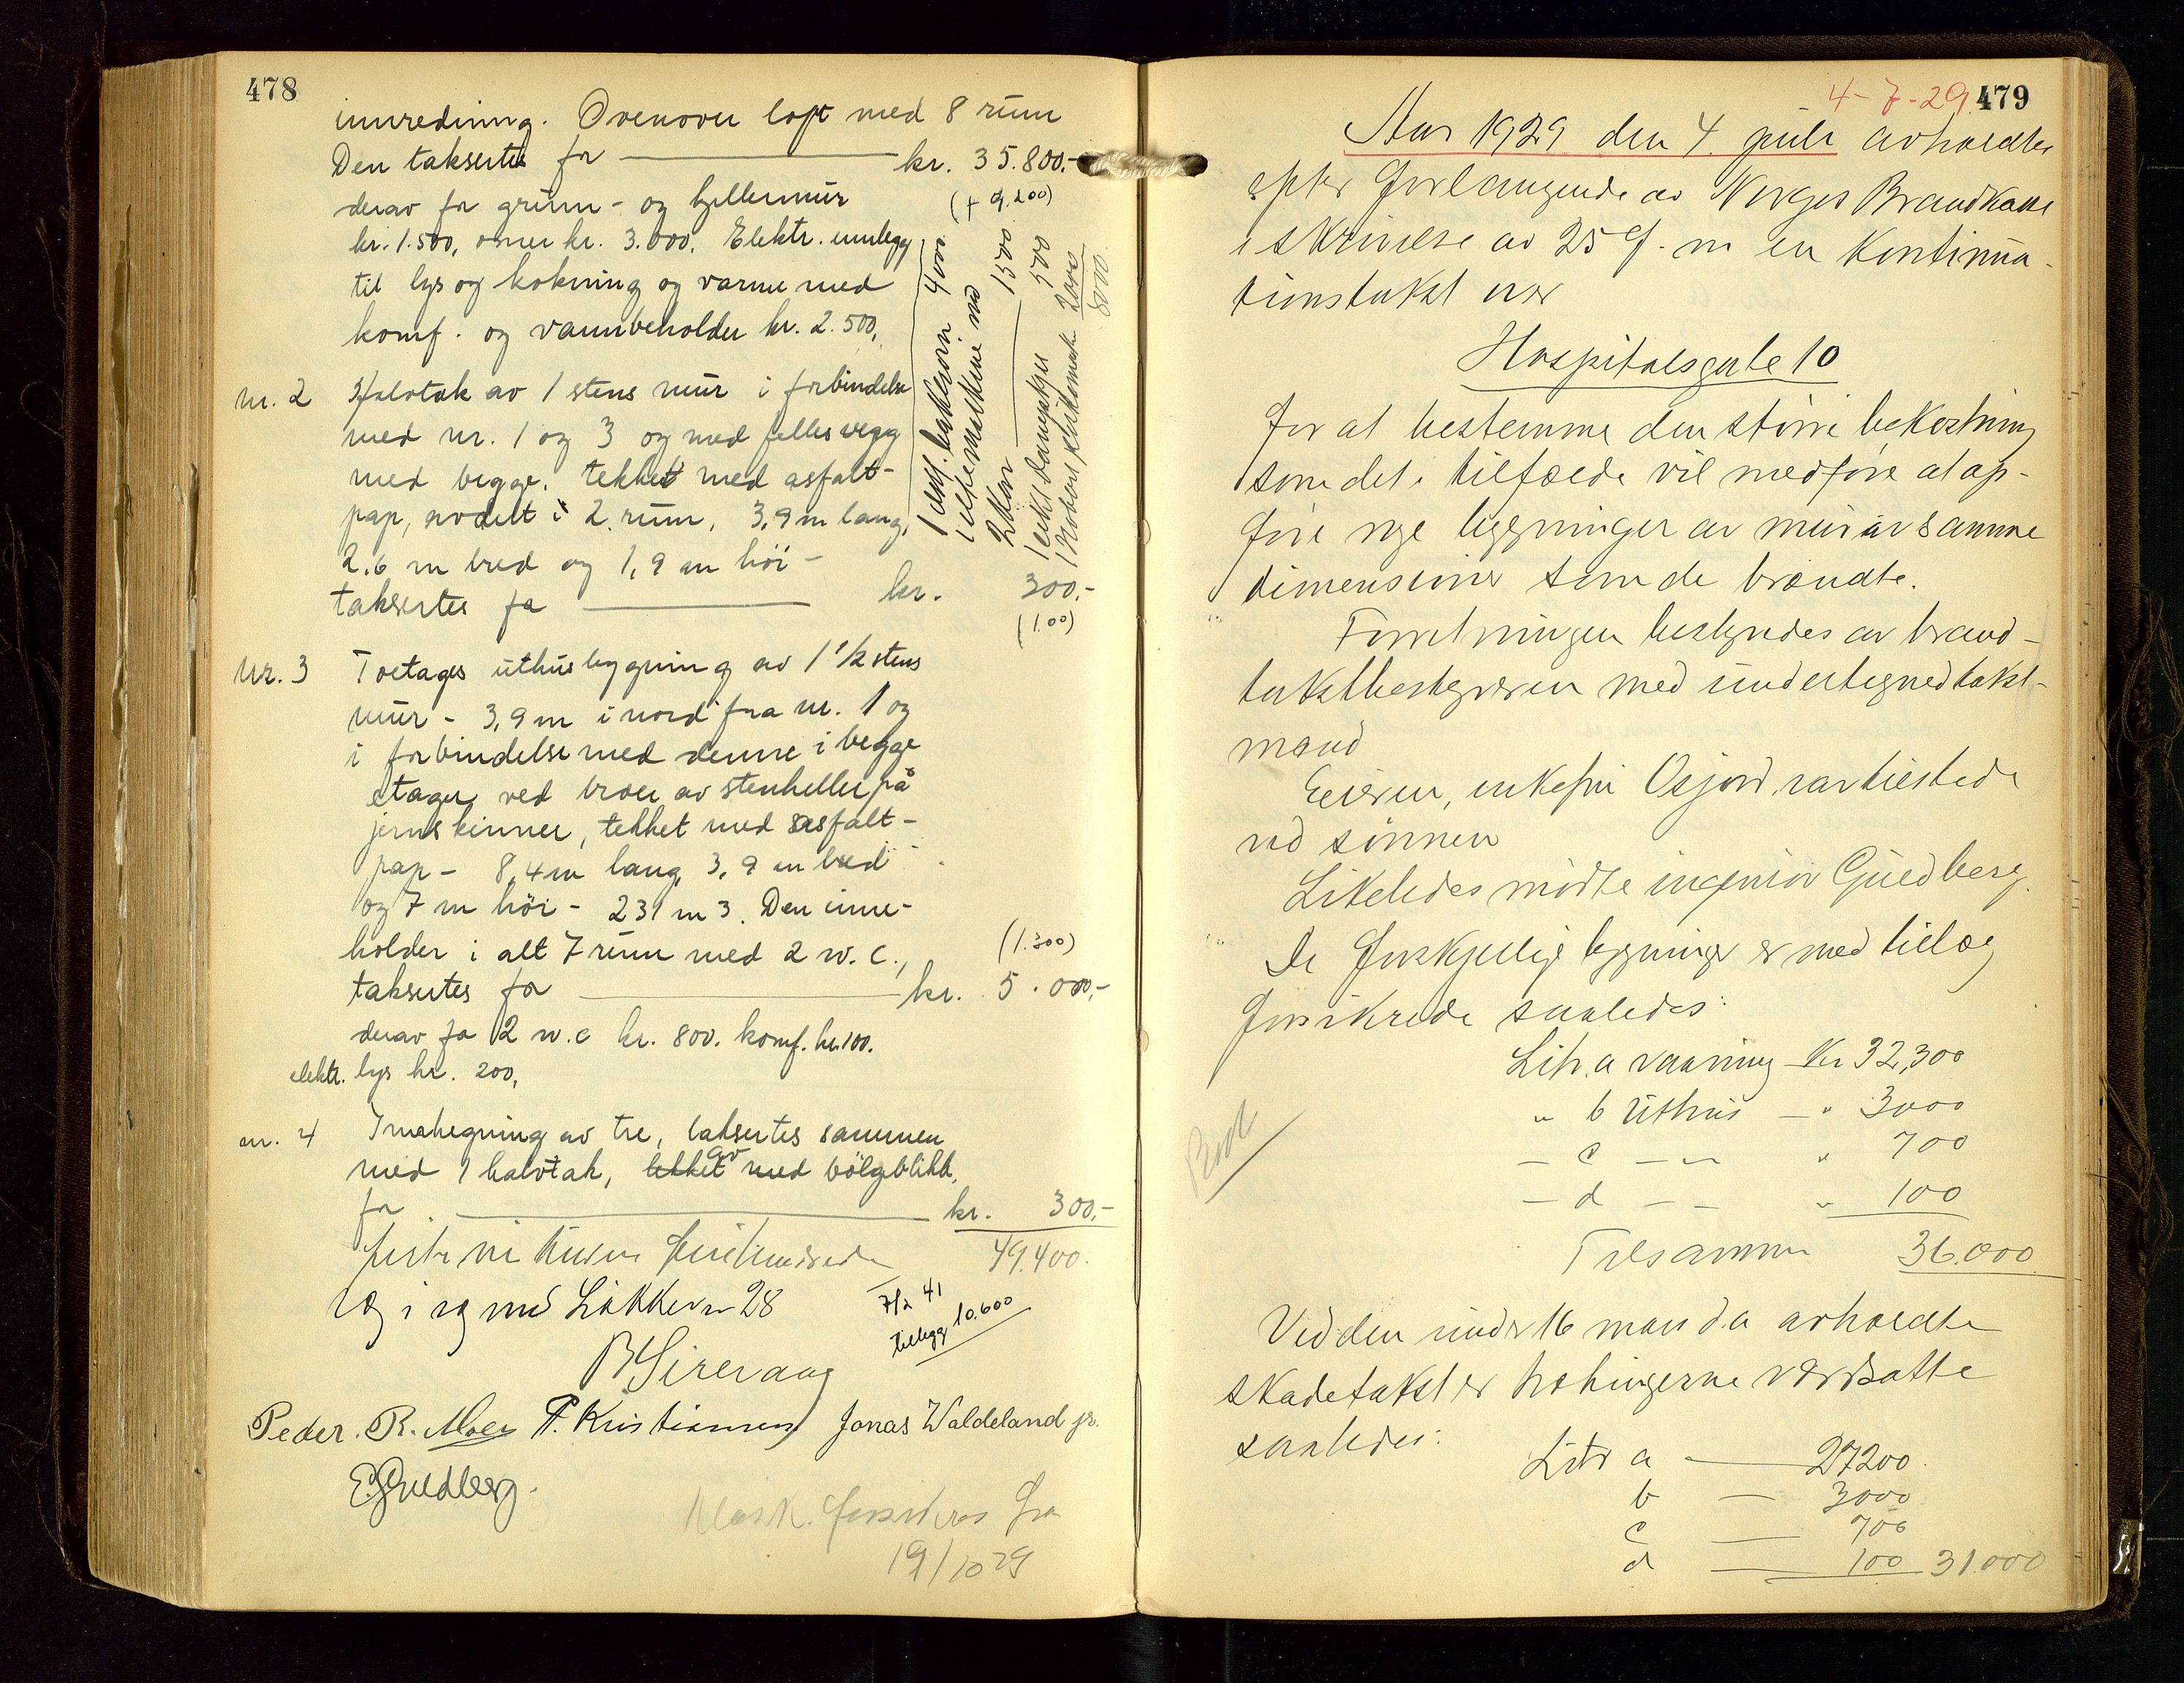 478
innredning. Ovenover loft med 8 rum
Den taksertes for — kr. 35.800.-
derav for grunn- og kjellermur (+ 9.200)
kr. 1.500, ovner kr. 3.000. Elektr. innlegg
til lys og kokning og varme med
komf. og vannbeholder kr. 2.500,
1 elektr. bakkerovn 4000
1 eltemaskine med
2 Kar — 1500
1 elekt. 500
1 2000
8000
nr. 2 Halvtak av 1 stens mur i forbindelse
med nr. 1 og 3 og med felles vegg
med begge. tekket med asfalt-
pap, avdelt i 2 rum, 3,9 m lang,
2,6 m bred og 1,9 m höi -
taksertes for — kr. 300.-
(100)
nr. 3 Toetages uthusbygning av 1 1/2 stens
mur - 3,9 m i nord fra nr. 1 og
i forbindelse med denne i begge
etager ved broer av stenheller på
jernskinner, tekket med asfalt-
pap - 8,4 m lang, 3,9 m bred
og 7 m höi - 231 m3. Den inne-
holder i alt 7 rum med 2 w.c., (1.300)
taksertes for — kr. 5.000,-
derav for 2 w.c kr. 800. komf. kr. 100.
elektr. lys kr. 200,
nr. 4 Innhegning av tre, taksertes sammen
med 1 halvtak, tekket av med bölgeblikk,
for — kr. 300.-
firti ni tusen firehundrede 49.400.
28
7/2 41
tillegg 10.600
B Sirevaag
Peder. R. Moen P. Kristiansen Jonas Waldeland jr.
E. Guldberg.
Mask. fra
19/10 29
4-7-29 479
Aar 1929 den 4. juli avholdtes
efter forlangende av Norges Brandkasse
i skrivelse av 25 f. m en Kontinua-
tionstakst over
Hospitalsgate 10
for at bestemme den större bekostning
som det i tilfælde vil medføre at op-
føre nye bygninger av mur av samme
dimensioner som de brændte.
Forretningen bestyredes av brand-
takstbestyreren med undertegned takst-
mænd
Eieren, enkefru Osjord var tilstede
ved sönnen
Likeledes mødte ingeniör Guldberg.
De forskjellige bygninger er med tillæg
forsikrede saaledes:
Litr. a vaaning Kr 32,300
" b Uthus — " 3000
— c — " — " 700
— d — — " 100
Tilsammen 36.000
Book
Ved den under 16 mai d.a avholdte
skadetakst er bygningerne værdsatte
saaledes:
Litr a — 27200.
b — 3000
c — 700
d — 100 31.000